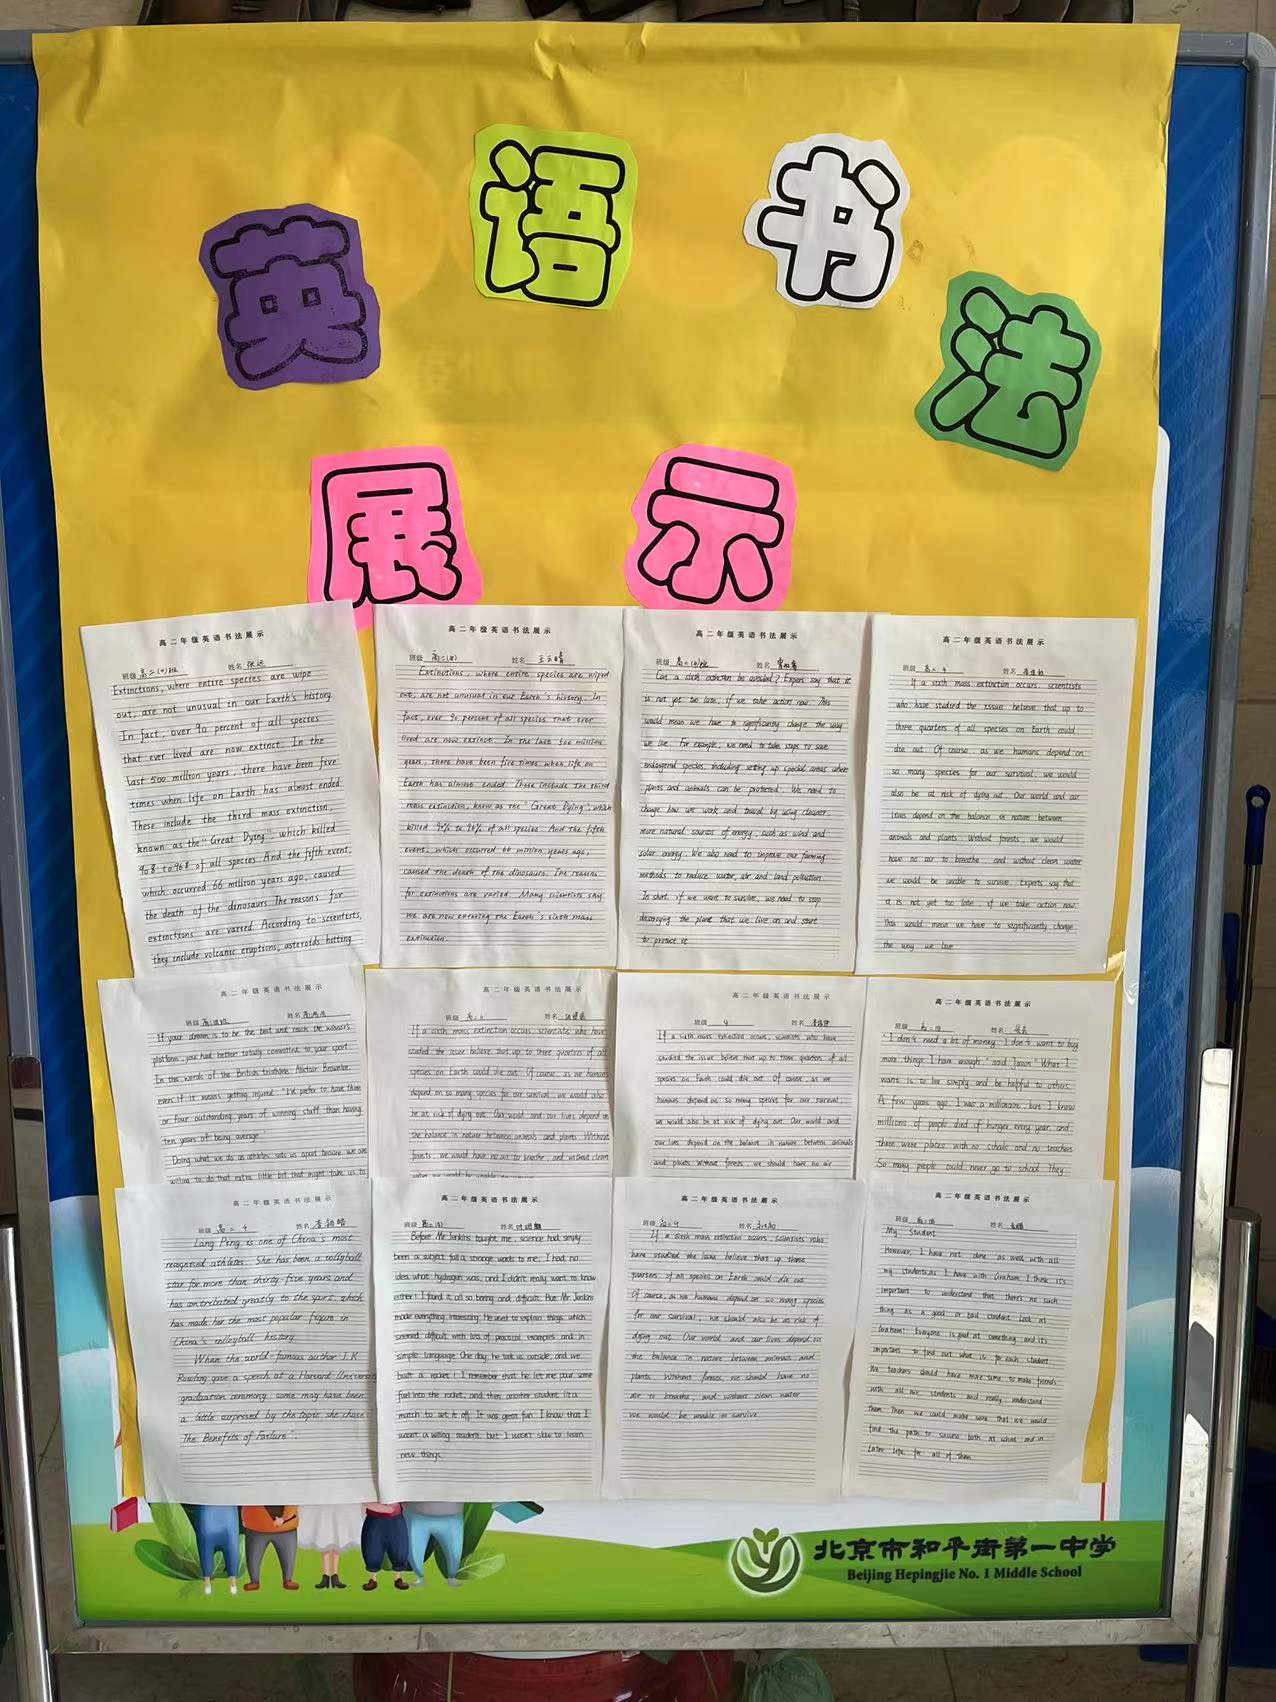 英语书法
展示
高二年级英语书法展示
班级 高二(4)班 姓名
Extinctions, where entire species are wipe
out, are not unusual in our Earth's history.
In fact, over 90 percent of all species
that ever lived are now extinct. In the
last 500 million years, there have been five
times when life on Earth has almost ended.
These include the third mass extinction,
known as the "Great Dying", which killed
90% to 96% of all species. And the fifth event,
which occurred 66 million years ago, caused
the death of the dinosaurs. The reasons for
extinctions are varied. According to scientists,
they include volcanic eruptions, asteroids hitting
高二年级英语书法展示
班级 姓名 王乐晴
Extinctions, where entire species are wiped
out, are not unusual in our Earth's history. In
fact, over 90 percent of all species that ever
lived are now extinct. In the last 500 million
years, there have been five times when life on
Earth has almost ended. These include the third
mass extinction, know as the "Great Dying", which
killed 90% to 96% of all species. And the fifth
event, which occurred 66 million years ago,
caused the death of the dinosaurs. The reasons
for extinctions are varied. Many scientists say
we are now entering the Earth's sixth mass
extinction.
高二年级英语书法展示
班级 高二(4)班 姓名
Can a sixth extinction be avoided? Experts say that it
is not yet too late, if we take action now. This
would mean we have to significantly change the way
we live. For example, we need to take steps to save
endangered species, including setting up special areas where
plants and animals can be protected. We need to
change how we work and travel by using cleaner,
more natural sources of energy, such as wind and
solar energy. We also need to improve our farming
methods to reduce water, air and land pollution.
In short, if we want to survive, we need to stop
destroying the planet that we live on and start
to protect it.
高二年级英语书法展示
班级 高二 4 姓名
If a sixth mass extinction occurs, scientists
who have studied the issue believe that up to
three quarters of all species on Earth could
die out. Of course, as we humans depend on
so many species for our survival, we would
also be at risk of dying out. Our world and our
lives depend on the balance in nature between
animals and plants. Without forests, we would
have no air to breathe, and without clean water
we would be unable to survive. Experts say that
it is not yet too late, if we take action now.
This would mean we have to significantly change
the way we live
高二年级英语书法展示
班级 姓名
If your dream is to be the best and reach the winner's
platform, you had better totally committed to your sport.
In the words of the British triathlete Alistair Brownlee,
even if it means getting injured: "I'd prefer to have three
or four outstanding years of winning stuff than having
ten years of being average.
Doing what we do as athletes sets us apart because we are
willing to do that extra little bit that might take us to
高二年级英语书法展示
班级 高二 4 姓名
If a sixth mass extinction occurs, scientists who have
studied the issue believe that up to three quarters of all
species on Earth could die out. Of course, as we humans
depend on so many species for our survival, we would also
be at risk of dying out. Our world and our lives depend on
the balance in nature between animals and plants. Without
forests, we would have no air to breathe, and without clean
高二年级英语书法展示
班级 4 姓名
If a sixth mass extinction occurs, scientists who have
studied the issue believe that up to three quarters of all
species on Earth could die out. Of course, as we
humans depend on so many species for our survival,
we would also be at risk of dying out. Our world and
our lives depend on the balance in nature between animals
and plants. Without forests, we should have no air
高二年级英语书法展示
班级 姓名
"I don't need a lot of money. I don't want to buy
more things. I have enough," said Jason. "What I
want is to live simply and be helpful to others.
A few years ago, I was a millionaire, but I know
millions of people died of hunger every year and
there were places with no schools and no teachers
So many people could never go to school. They
高二年级英语书法展示
班级 高二 4 姓名
Lang Ping is one of China's most
recognised athletes. She has been a volleyball
star for more than thirty-five years and
has contributed greatly to the sport, which
has made her the most popular figure in
China's volleyball history.
When the world-famous author J.K.
Rowling gave a speech at a Harvard University
graduation ceremony, some may have been
a little surprised by the topic she chose:
"The Benefits of Failure".
高二年级英语书法展示
班级 姓名
Before Mr Jenkins taught me, science had simply
been a subject full of strange words to me. I had no
idea what hydrogen was, and I didn't really want to know
either! I found it all so boring and difficult. But Mr Jenkins
made everything interesting. He used to explain things which
seemed difficult with lots of practical examples and in
simple language. One day, he took us outside, and we
built a rocket! I remember that he let me pour some
fuel into the rocket, and then another student lit a
match to set it off. It was great fun. I know that I
wasn't a willing student, but I wasn't slow to learn
new things.
高二年级英语书法展示
班级 高二 4 姓名
If a sixth mass extinction occurs, scientists who
have studied the issue believe that up three
quarters of all species on Earth could die out.
Of course, as we humans depend on so many species
for our survival, we should also be at risk of
dying out. Our world and our lives depend on
the balance in nature between animals and
plants. Without forests, we should have no
air to breathe, and without clean water
we would be unable to survive
高二年级英语书法展示
班级 姓名
My Student
However, I have not done as well with all
my students as I have with Graham. I think it's
important to understand that there's no such
thing as a good or bad student. Look at
Graham! Everyone is good at something, and it's
important to find out what is for each student.
We teachers should have more time to make friends
with all our students and really understand
them. Then we could make sure that we would
find the path to success both at school and in
later life for all of them
北京市和平街第一中学
Beijing Hepingjie No. 1 Middle School